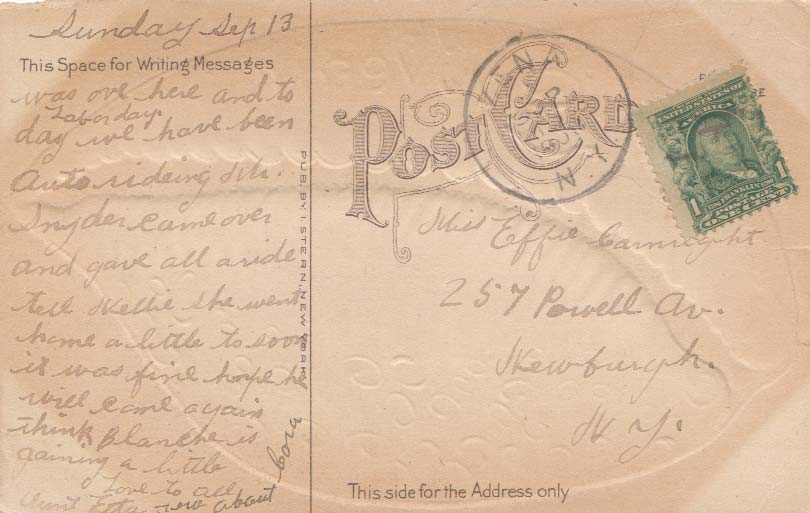 Sunday Sep 13
This Space for Writing Messages
was over here and to
Labor day
day we have been
Auto rideing Mr.
Snyder came over
and gave all a ride
tell Nellie she went
home a little to soon
it was fine hope he
will come again
think Blanche is
gaining a little
Love to all
Aunt about
Cora
PUB. BY I. STERN, NEW YORK
POST CARD
ZENA
N.Y.
UNITED STATES OF
AMERICA
1 FRANKLIN 1
ONE CENT
Miss Effie Carnright
257 Powell Av.
Newburgh.
N Y.
This side for the Address only